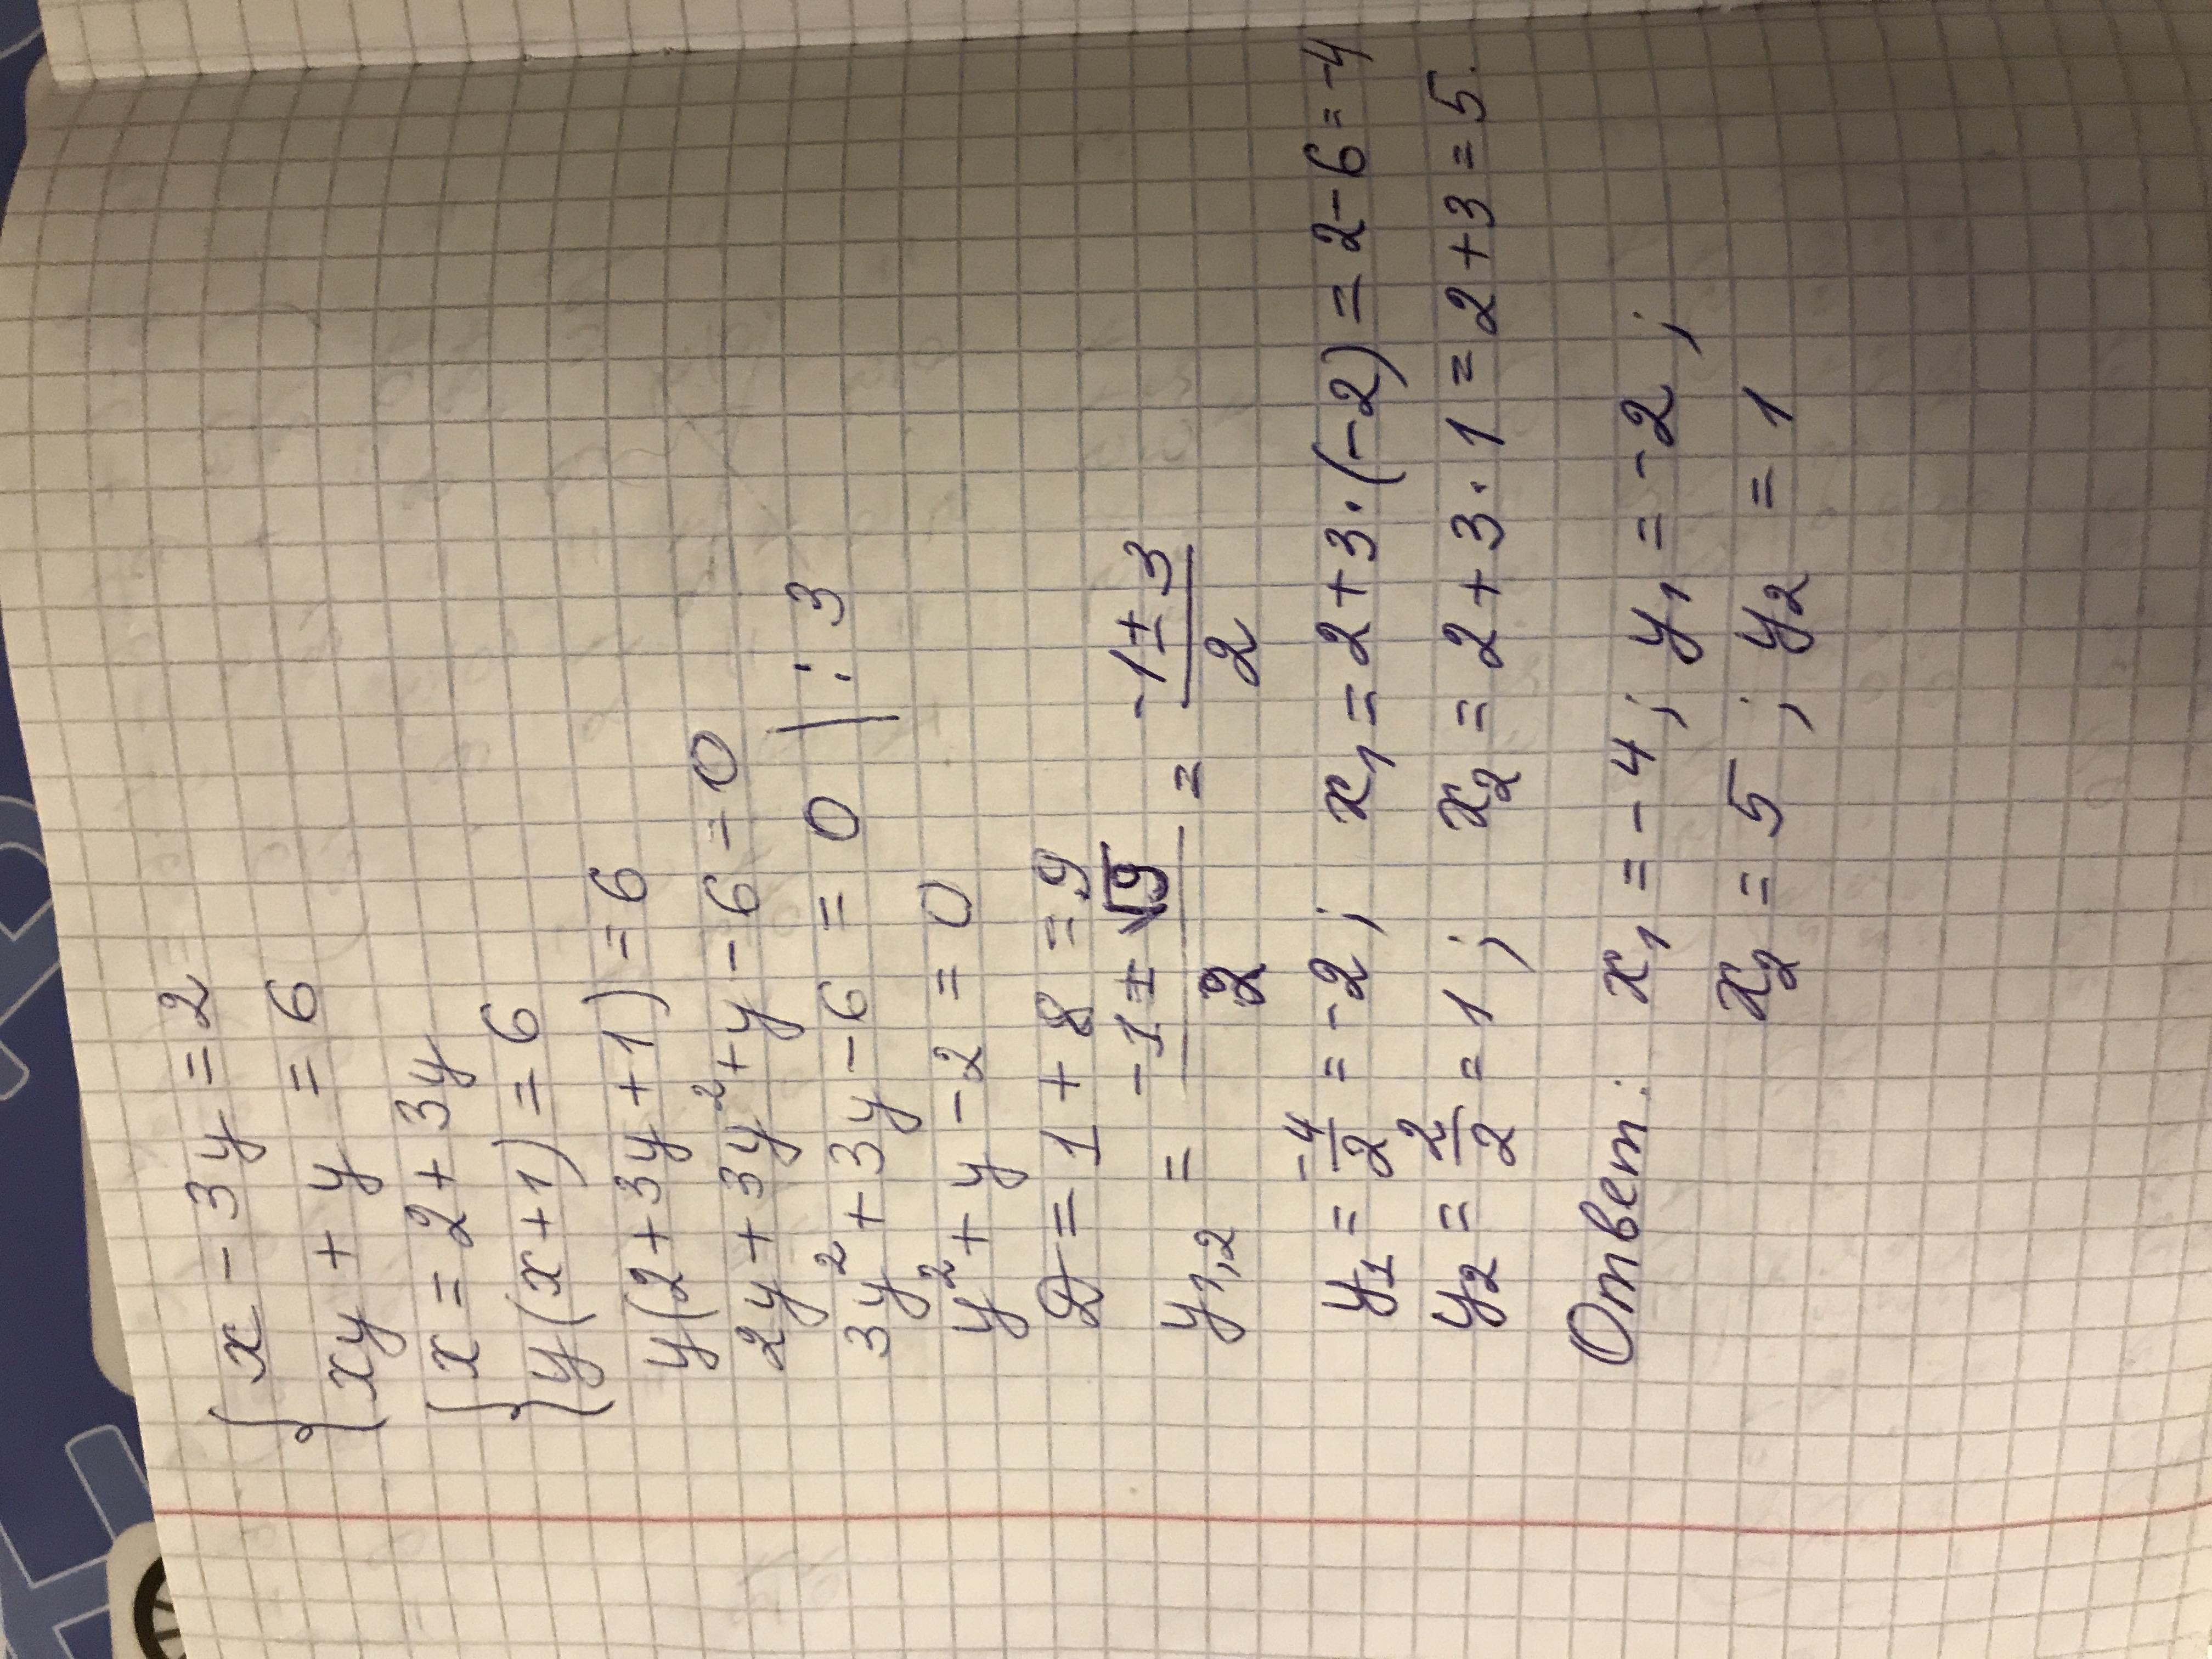 { x - 3y = 2
{ xy + y = 6
{ x = 2 + 3y
{ y(x+1) = 6
y(2+3y+1) = 6
2y + 3y² + y - 6 = 0
3y² + 3y - 6 = 0 | : 3
y² + y - 2 = 0
D = 1 + 8 = 9
y₁,₂ = (-1 ± √9)/2 = (-1 ± 3)/2
y₁ = -4/2 = -2 ; x₁ = 2 + 3·(-2) = 2 - 6 = -4
y₂ = 2/2 = 1 ; x₂ = 2 + 3·1 = 2 + 3 = 5.
Ответ: x₁ = -4 ; y₁ = -2 ;
x₂ = 5 ; y₂ = 1